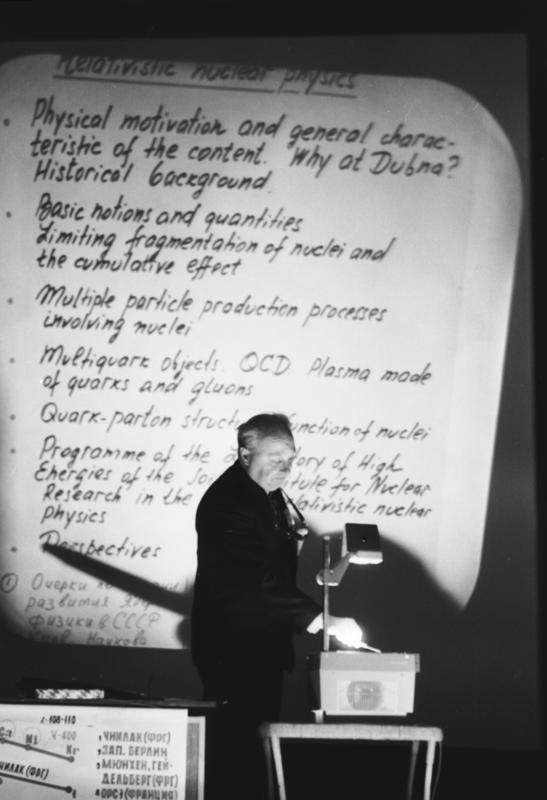 Relativistic nuclear physics
• Physical motivation and general charac-
teristic of the content. Why at Dubna?
Historical background.
• Basic notions and quantities
Limiting fragmentation of nuclei and
the cumulative effect
• Multiple particle production processes
involving nuclei
• Multiquark objects. QCD. Plasma made
of quarks and gluons
• Quark-parton function of nuclei
• Programme of the of High
Energies of the for Nuclear
Research in the nuclear
physics
• Perspectives
① Очерки
развития
физики в СССР
Киев, Наукова
2-108-110
Ca Ni Ч-400
Kr
УНИЛАК (ФРГ)
, УНИЛАК (ФРГ)
, ЗАП. БЕРЛИН
, МЮНХЕН, ГЕЙ-
ДЕЛЬБЕРГ (ФРГ)
(ФРАНЦИЯ)